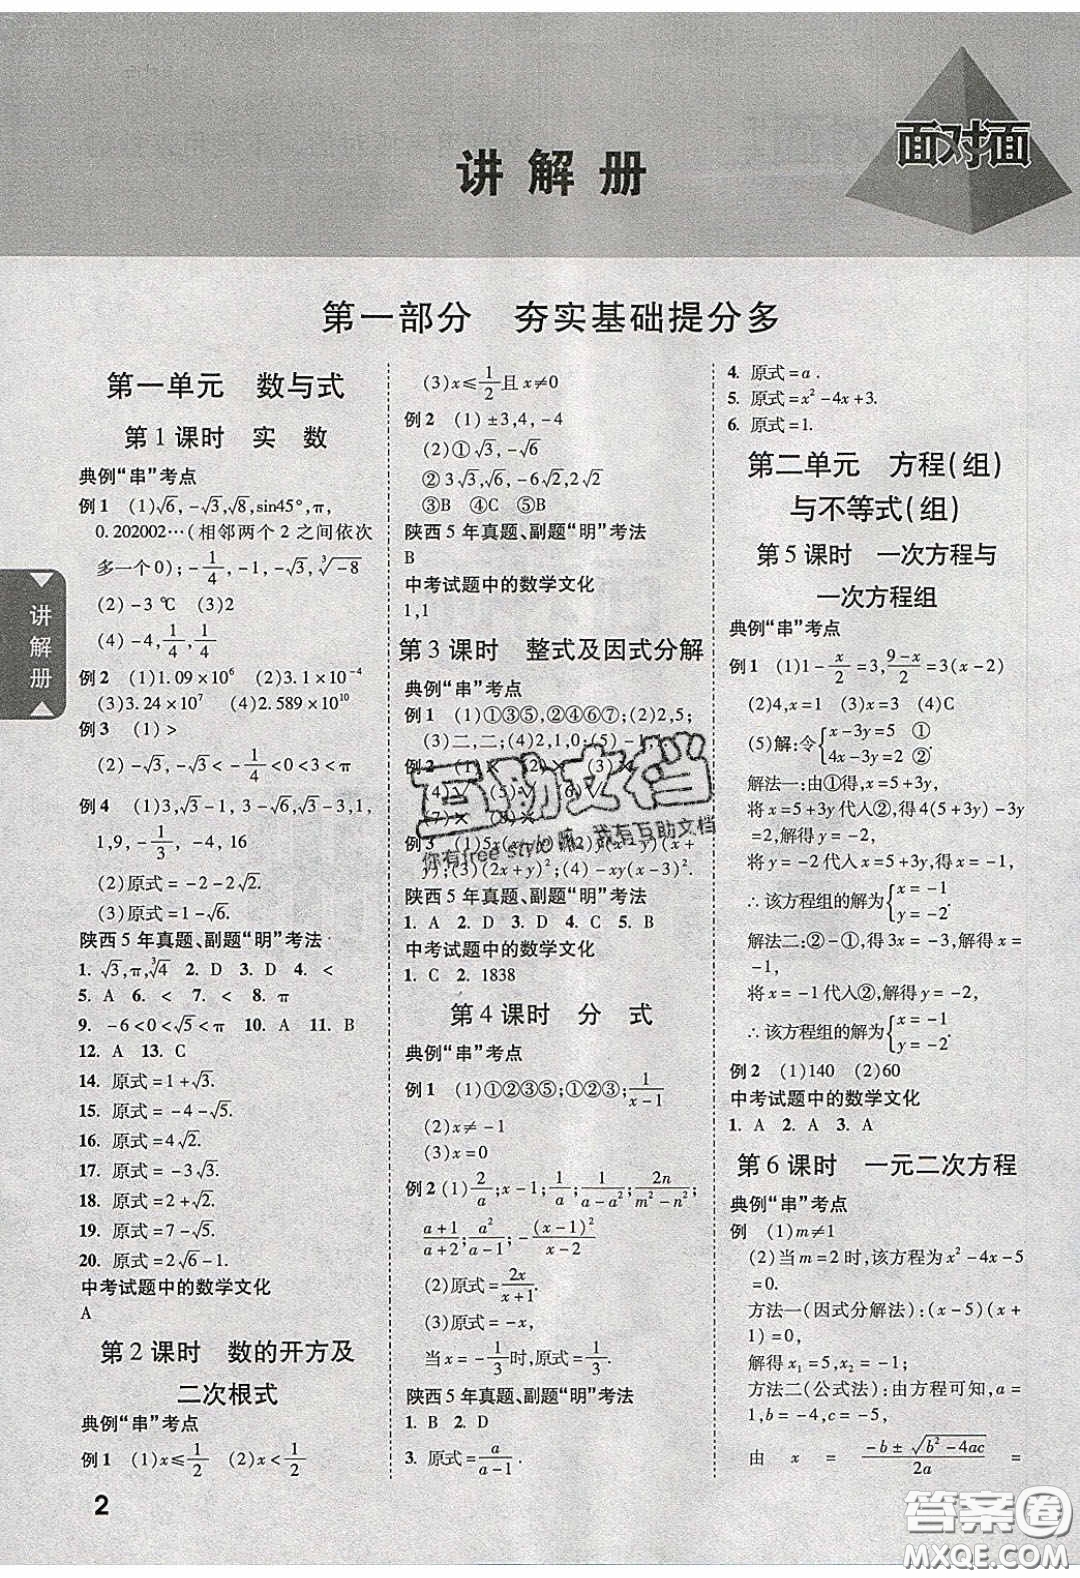 讲解册
面对面
第一部分 夯实基础提分多
讲解册
第一单元 数与式
第1课时 实 数
典例“串”考点
例1 (1)√6,-√3,√8,sin45°,π,
0.202002…(相邻两个2之间依次
多一个0);-1/4,-1,-√3,∛-8
(2)-3 ℃ (3)2
(4)-4,1/4,1/4
例2 (1)1.09×10⁶ (2)3.1×10⁻⁴
(3)3.24×10⁷ (4)2.589×10¹⁰
例3 (1)>
(2)-√3,-√3<-1/4<0<3<√11
例4 (1)3,√3-1,3-√6,√3-3,1,
1,9,-1/3,-4,16
(2)原式=-2-2√2.
(3)原式=1-√6.
陕西5年真题、副题“明”考法
1. √3,π,∛4 2. D 3. D 4. <
5. A 6. < 7. < 8. π
9. -6<0<√5<π 10. A 11. B
12. A 13. C
14. 原式=1+√3.
15. 原式=-4-√5.
16. 原式=4√2.
17. 原式=-3√3.
18. 原式=2+√2.
19. 原式=7-√5.
20. 原式=2√6-1.
中考试题中的数学文化
A
第2课时 数的开方及
二次根式
典例“串”考点
例1 (1)x≤1/2 (2)x<1/2
(3)x≤1/2且x≠0
例2 (1)±3,4,-4
(2)①√3,-√6
②3√3,√6,√6,2√3,√2
③B ④C ⑤B
陕西5年真题、副题“明”考法
B
中考试题中的数学文化
1,1
第3课时 整式及因式分解
典例“串”考点
例1 (1)①③⑤,②④⑥⑦;(2)2,5;
(3)二,二;(4)2,1,0;(5)-
例2 (1)× (2)× (3)×
(4)√
(7)× (8)×
例3 (1)5x(x+
y);(3)(2x+y)²;(4)-xy(x-3)².
陕西5年真题、副题“明”考法
1. A 2. D 3. D 4. C 5. B
中考试题中的数学文化
1. C 2. 1838
第4课时 分 式
典例“串”考点
例1 (1)①②③⑤;①②③;1/(x-1)
(2)x≠-1
(3)x=0
例2 (1)2/a;x-1;1/a,1/(a-a²);2n/(m²-n²);
(a+1)/(a+2);a²/(a-1);-(x-1)²/(x-2)
(2)原式=2x/(x+1).
(3)原式=-x,
当x=-1/3时,原式=1/3.
陕西5年真题、副题“明”考法
1. B 2. D
3. 原式=a/(a-1).
4. 原式=a.
5. 原式=x²-4x+3.
6. 原式=1.
第二单元 方程(组)
与不等式(组)
第5课时 一次方程与
一次方程组
典例“串”考点
例1 (1)1-x/2=3,(9-x)/2=3(x-2)
(2)4,x=1 (3)A (4)C
(5)解:令{x-3y=5 ①
4x-3y=2 ②.
解法一:由①得,x=5+3y,
将x=5+3y代入②,得4(5+3y)-3y
=2,解得y=-2,
将y=-2代入x=5+3y,得x=-1,
∴该方程组的解为{x=-1
y=-2.
解法二:②-①,得3x=-3,解得x=
-1,
将x=-1代入②,解得y=-2,
∴该方程组的解为{x=-1
y=-2.
例2 (1)140 (2)60
中考试题中的数学文化
1. A 2. A 3. A
第6课时 一元二次方程
典例“串”考点
例 (1)m≠1
(2)当m=2时,该方程为x²-4x-5
=0.
方法一(因式分解法):(x-5)(x+
1)=0,
解得x₁=5,x₂=-1;
方法二(公式法):由方程可知,a=
1,b=-4,c=-5,
由 x = (-b±√(b²-4ac))/2a =
2
互助文档
你有free style嘛,我有互助文档
答案圈
MXQE.COM